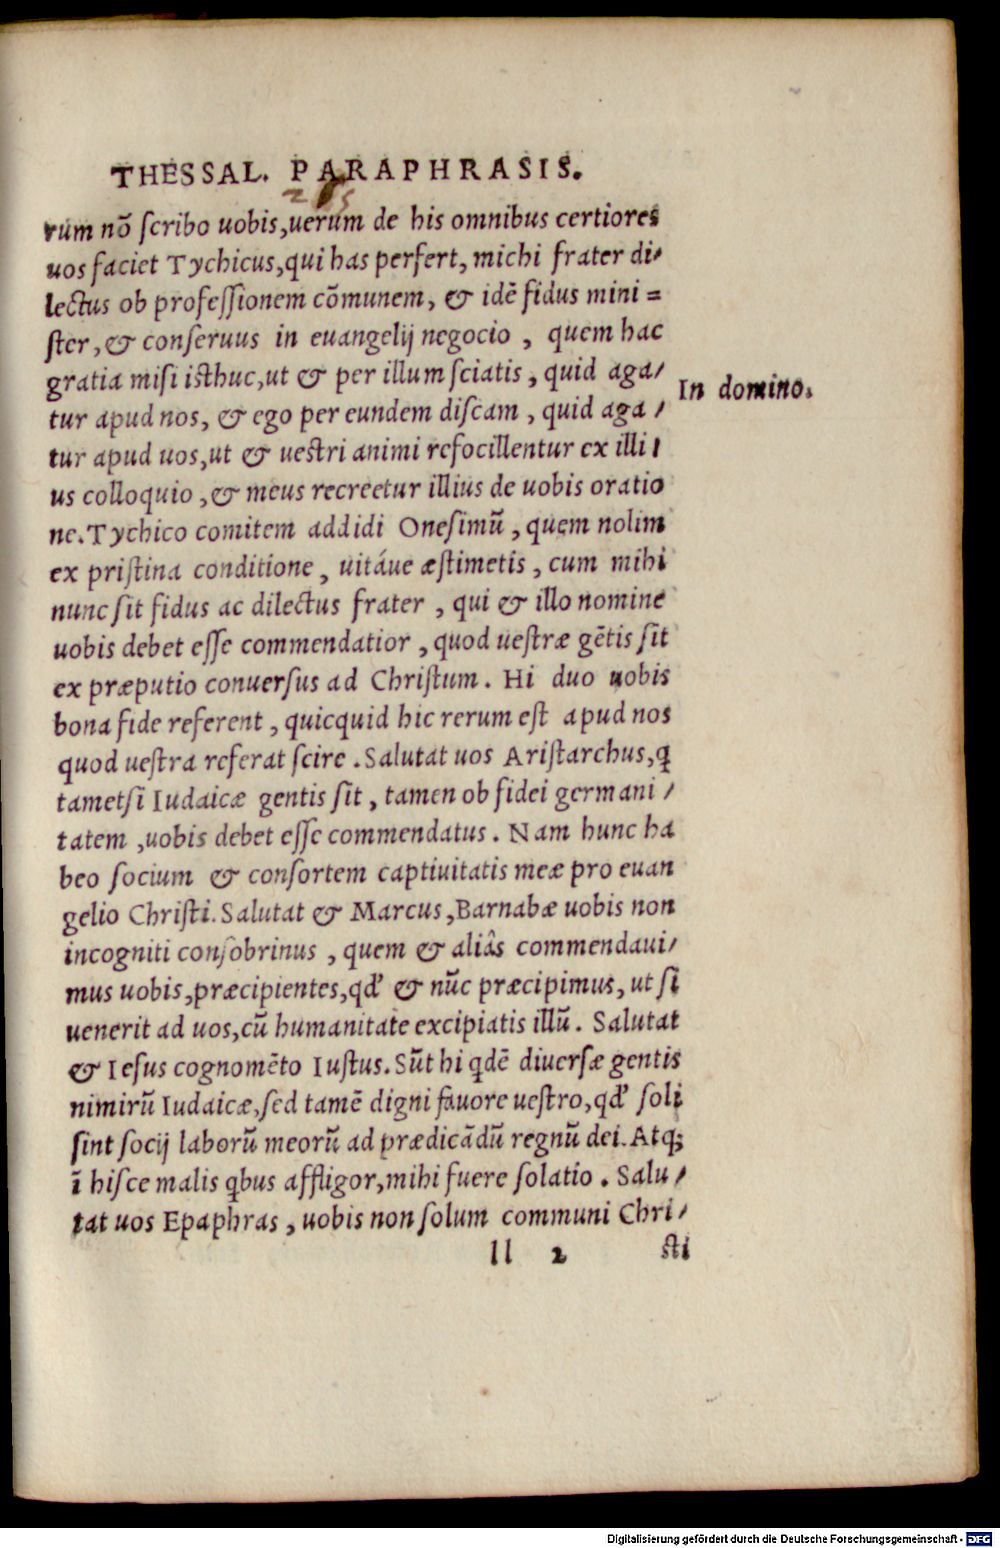 THESSAL. PARAPHRASIS.
rum nō ſcribo uobis,uerum de his omnibus certiores
uos faciet Tychicus,qui has perfert, michi frater di/
lectus ob profeſſionem cōmunem, & idē fidus mini =
ſter,& conſeruus in euangelij negocio , quem hac
gratia miſi iſthuc,ut & per illum ſciatis, quid aga/
In domino.
tur apud nos, & ego per eundem diſcam , quid aga /
tur apud uos,ut & ueſtri animi refocillentur ex illi /
us colloquio ,& meus recreetur illius de uobis oratio
ne.Tychico comitem addidi Oneſimū , quem nolim
ex priſtina conditione, uitáue æſtimetis , cum mihi
nunc ſit fidus ac dilectus frater , qui & illo nomine
uobis debet eſſe commendatior , quod ueſtræ gētis ſit
ex præputio conuerſus ad Chriſtum. Hi duo uobis
bona fide referent , quicquid hic rerum eſt apud nos
quod ueſtra referat ſcire .Salutat uos Ariſtarchus,ꝗ
tametſi Iudaicæ gentis ſit , tamen ob fidei germani /
tatem ,uobis debet eſſe commendatus. Nam hunc ha
beo ſocium & conſortem captiuitatis meæ pro euan
gelio Chriſti.Salutat & Marcus,Barnabæ uobis non
incogniti conſobrinus , quem & aliâs commendaui/
mus uobis,præcipientes,qd' & nūc præcipimus, ut ſi
uenerit ad uos,cū humanitate excipiatis illū. Salutat
& Ieſus cognomēto Iuſtus.Sūt hi ꝗdē diuerſæ gentis
nimirū Iudaicæ,ſed tamē digni fauore ueſtro,qd' ſoli
ſint ſocij laborū meorū ad prædicādū regnū dei.Atq;
ī hiſce malis ꝗbus affligor,mihi fuere ſolatio . Salu/
tat uos Epaphras , uobis non ſolum communi Chri/
ll 2 ſti
Digitalisierung gefördert durch die Deutsche Forschungsgemeinschaft - DFG